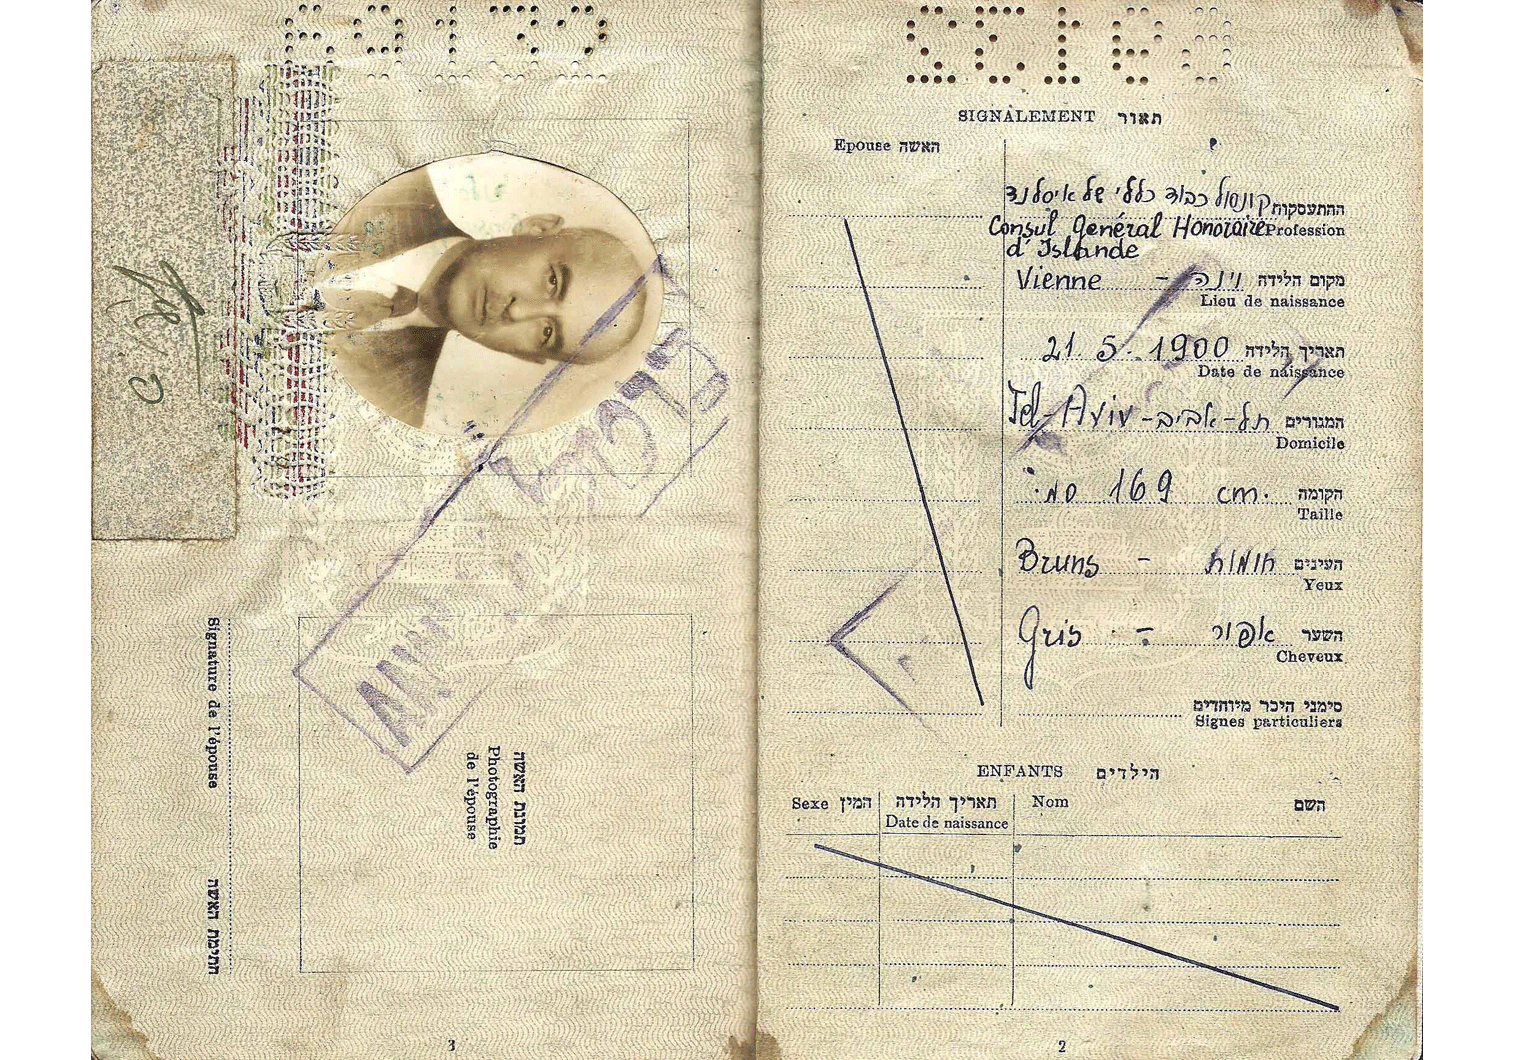 SIGNALEMENT תאור
Epouse האשה
ההתעסקות קונסול כבוד כללי של איסלנד
Consul Général Honoraire Profession
d'Islande
Vienne - וינה מקום הלידה
Lieu de naissance
21 5. 1900 תאריך הלידה
Date de naissance
Tel-Aviv - תל-אביב המגורים
Domicile
169 cm. הקומה
Taille
Bruns - חומות העינים
Yeux
Gris - אפור השער
Cheveux
סימני היכר מיוחדים
Signes particuliers
ENFANTS הילדים
Sexe המין תאריך הלידה Nom השם
Date de naissance
2
תמונת האשה
Photographie
de l'épouse
Signature de l'épouse חתימת האשה
3